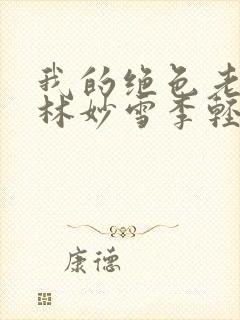 我的绝色老
林妙雪季轻
康德